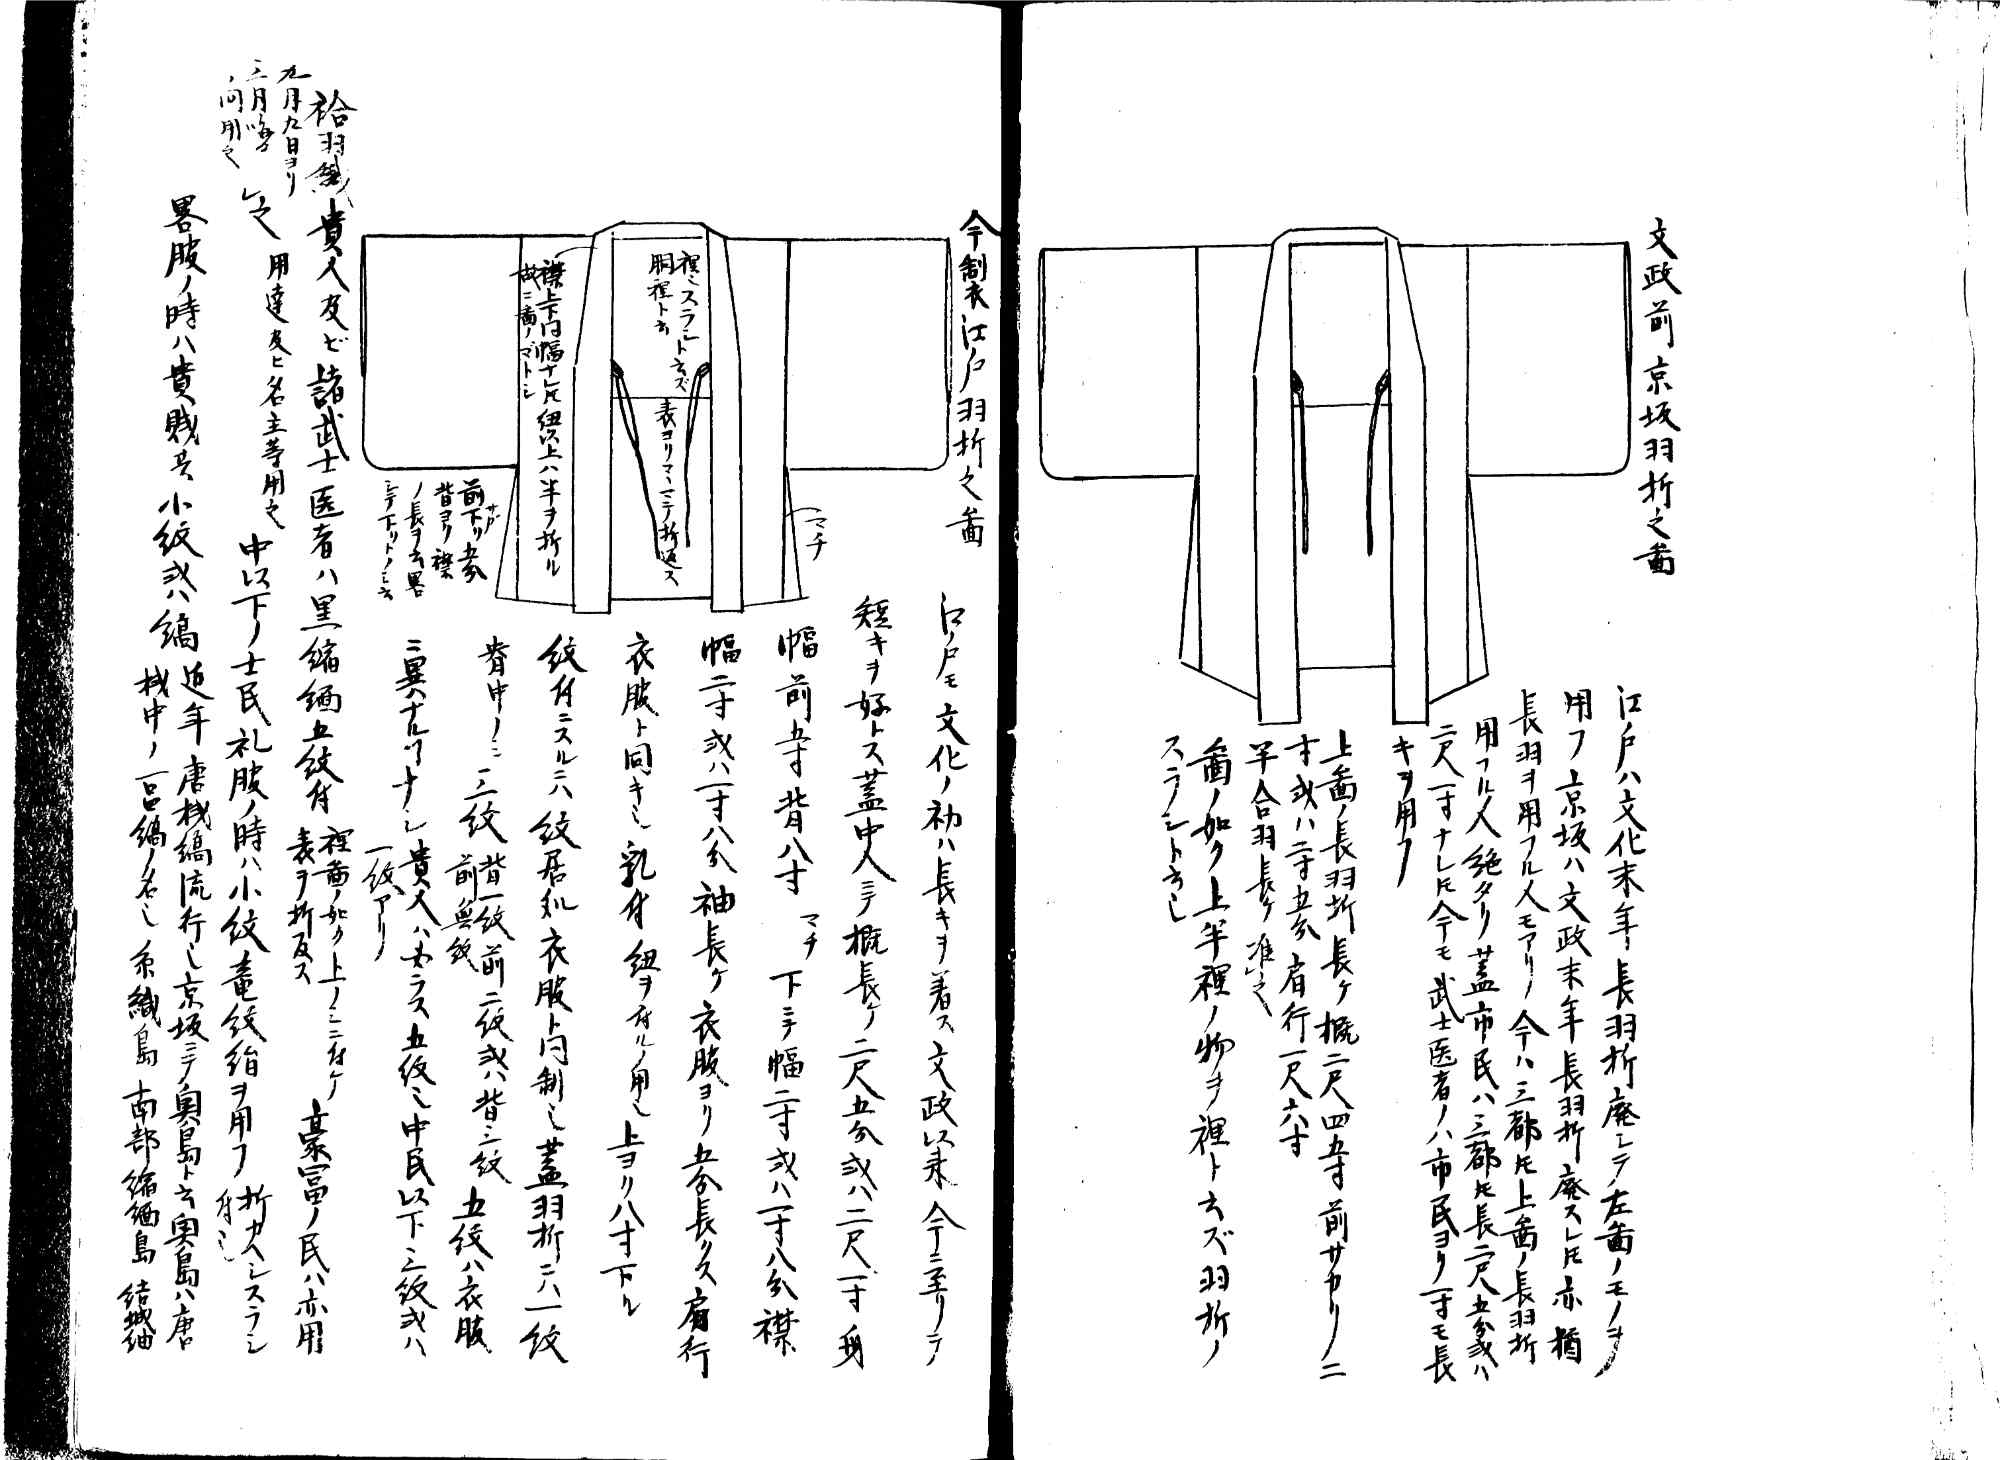 文政前京坂羽折之啚
江戸ハ文化末年ヨリ長羽折廃シテ左啚ノモノヲ
用フ京坂ハ文政末年長羽折廃スレ𪜈亦猶
長羽ヲ用フル人モアリ今ハ三都𪜈上啚ノ長羽折
用フル人絶タリ蓋市民ハ三都𪜈長二尺五分或ハ
二尺一寸ナレ𪜈今モ武士医者ノハ市民ヨリ一寸モ長
キヲ用フ
上啚ノ長羽折長ケ概二尺四五寸前サカリノ二
寸或ハ二寸五分肩行一尺六寸
半合羽長ケ准之
啚ノ如ク上半裡ノ物ヲ裡ト云ズ羽折ノ
スラシト云也
今制衣江戸羽折之啚
裡ヲスラシト云ズ
胴裡ト云
表ヨリマハシテ折返ス
襟上下同幅ナレ𪜈紐以上ハ半ヲ折ル
故ニ啚ノゴトシ
マチ
前下リ五分
背ヨリ襟
ノ長ヲ云畧
シテ下リトノミ云
江戸モ文化ノ初ハ長キヲ着ス文政以来今ニ至リテ
短キヲ好トス蓋中人ニテ概長ケ二尺五分或ハ二尺一寸身
幅前五寸背八寸 マチ下ニテ幅二寸或ハ一寸八分襟
幅二寸或ハ一寸八分袖長ケ衣服ヨリ五分長クス肩行
衣服ト同キ也乳付紐ヲ付ルノ用也上ヨリ八寸下ル
紋付ニスルニハ紋居処衣服ト同制也蓋羽折ニハ一紋
脊中ノミ三紋背一紋前二紋或ハ背三紋前無紋五紋ハ衣服
ニ異ハナルヿナシ貴人ハ必ラス五紋也中民以下三紋或ハ
一紋アリ
袷羽織
九月九日ヨリ
三月晦マテ
ノ間用之
貴人及ビ諸武士医者ハ黒縮緬五紋付裡啚ノ如ク上ノミニ付ケ表ヲ折反ス豪冨ノ民ハ亦用
用達及ヒ名主等用之
中以下ノ士民礼服ノ時ハ小紋竜紋絹ヲ用フ折カヘシスラシ付也
畧服ノ時ハ貴賎共小紋或ハ縞近年唐桟縞流行シ京坂ニテ奥島ト云奥島ハ唐
桟中ノ一品縞ノ名也糸織島南部縮緬島結城紬